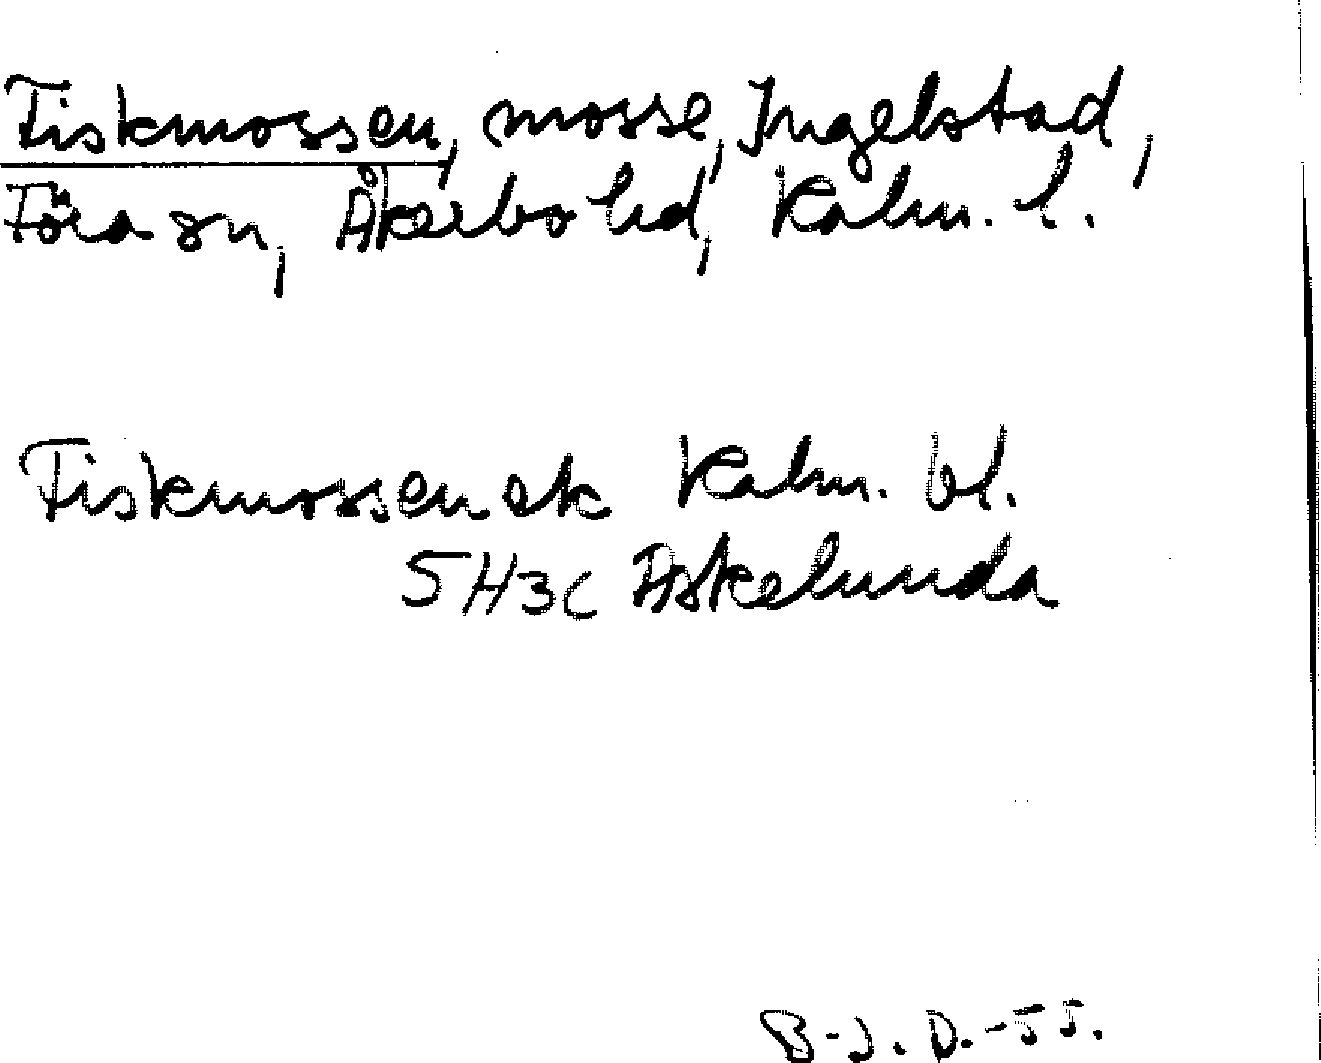 Fiskmossen, mosse, Ingelstad,
Föra sn, Åkerbo hd, Kalm. l.
Fiskmossen ek Kalm. bl.
5H3c Askelunda
B-J. D.-55.